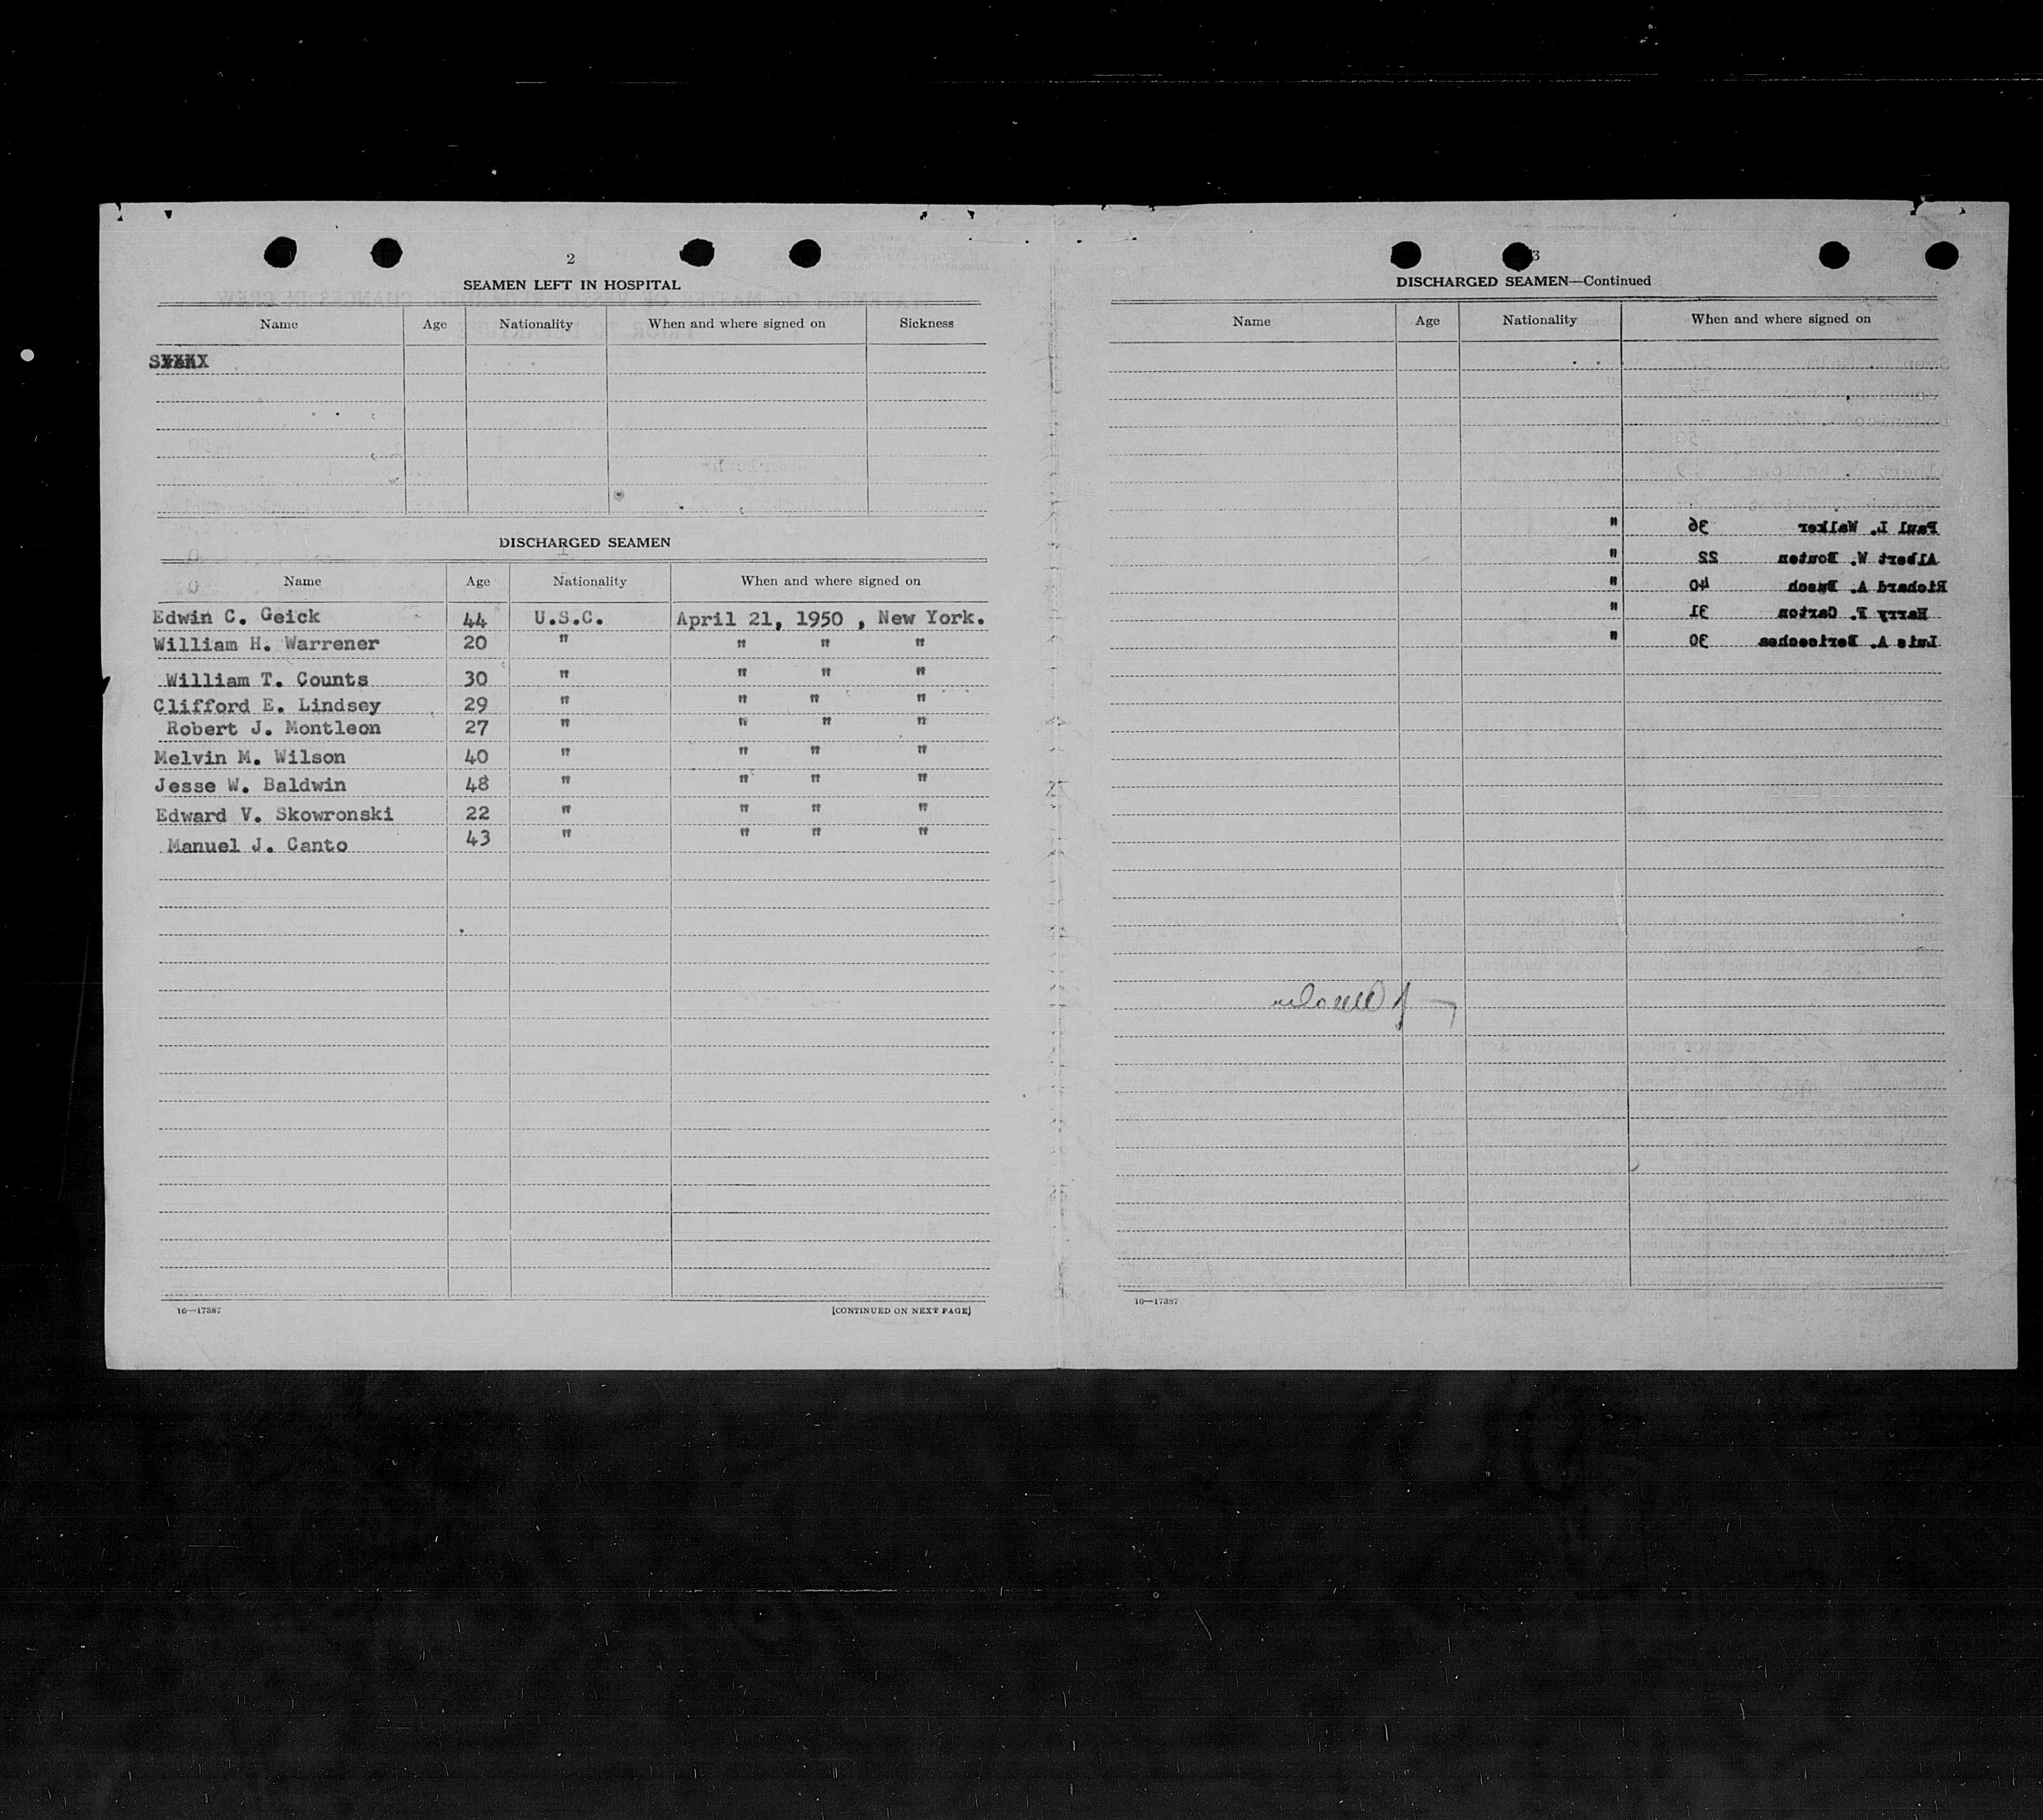 2
SEAMEN LEFT IN HOSPITAL
Name Age Nationality When and where signed on Sickness
DISCHARGED SEAMEN
Name Age Nationality When and where signed on
Edwin C. Geick 44 U.S.C. April 21, 1950 , New York.
William H. Warrener 20 " " " "
William T. Counts 30 " " " "
Clifford E. Lindsey 29 " " " "
Robert J. Montleon 27 " " " "
Melvin M. Wilson 40 " " " "
Jesse W. Baldwin 48 " " " "
Edward V. Skowronski 22 " " " "
Manuel J. Canto 43 " " " "
16—17387
[CONTINUED ON NEXT PAGE]
3
DISCHARGED SEAMEN—Continued
Name Age Nationality When and where signed on
Paul L. Walker 36 "
Albert W. Bouten 22 "
Richard A. Busch 40 "
Harry F. Carton 31 "
Luis A. 30 "
16—17387